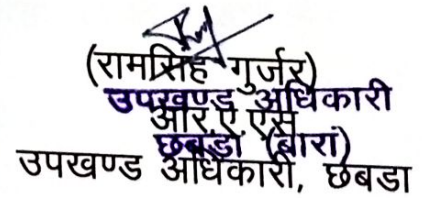 (रामसिंह गुर्जर)
उपखण्ड अधिकारी
आर.ए.एस
छबडा (बारां)
उपखण्ड अधिकारी, छबडा